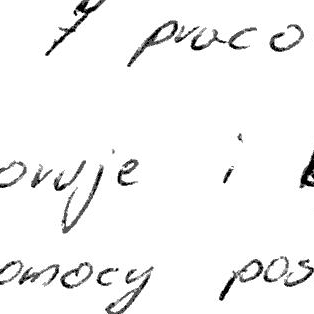 praco
oruje i
omocy pos